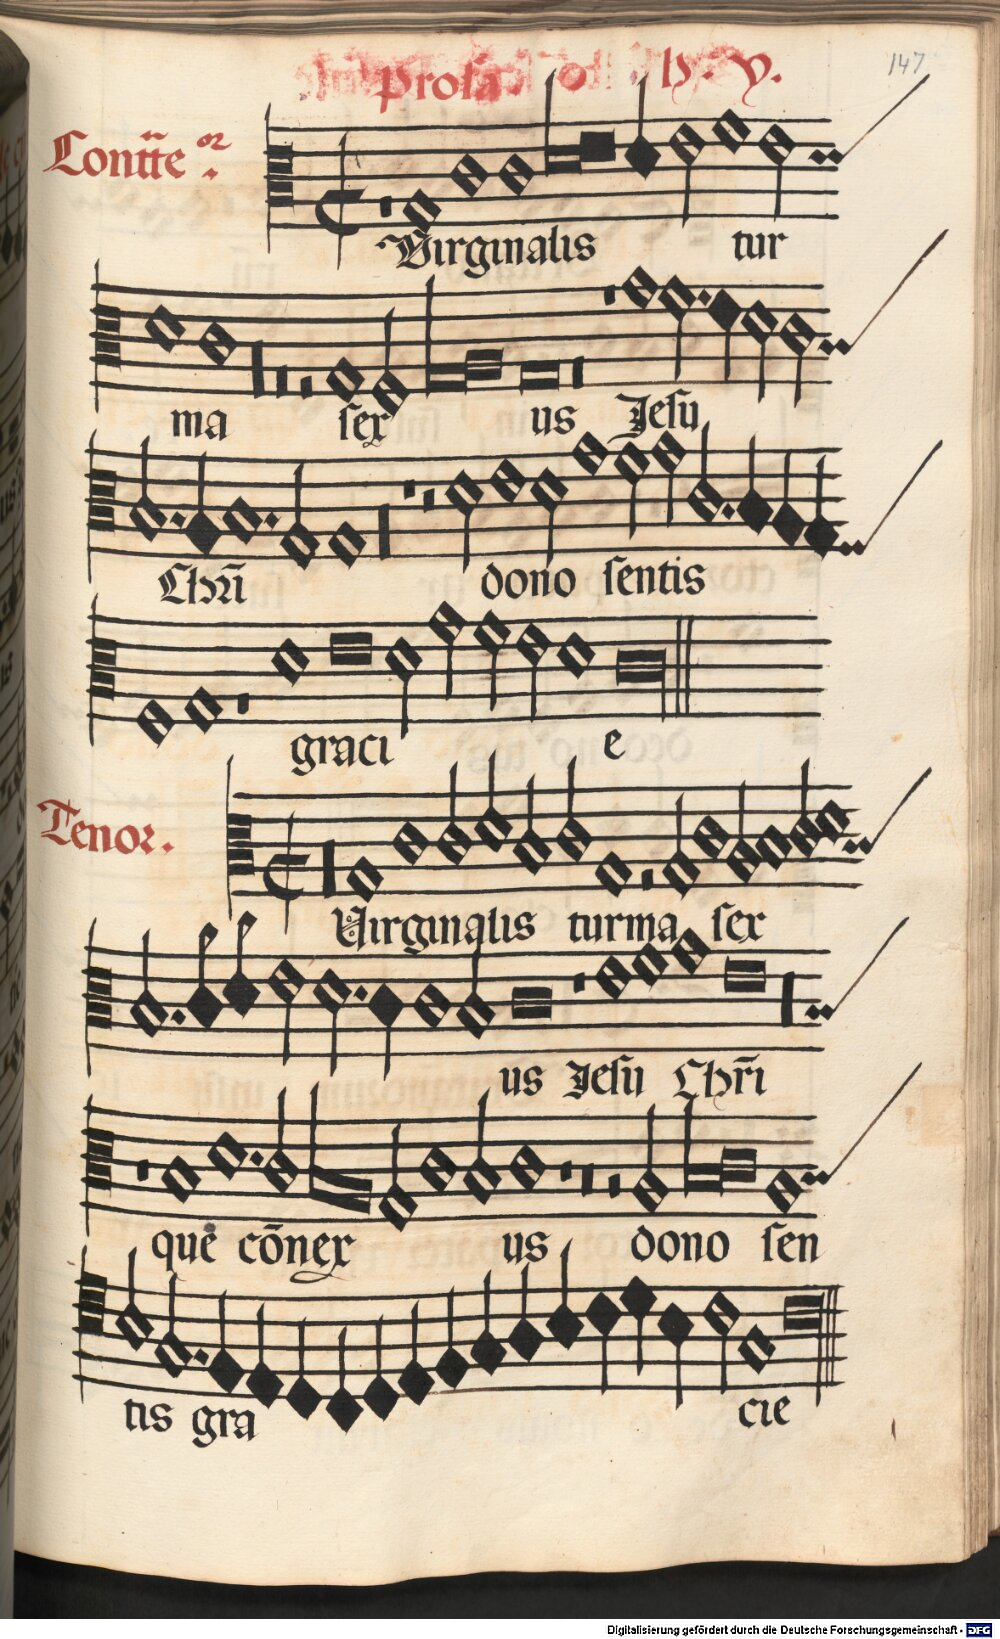 147
Prosa. o H. V.
Contr̄te or.
Virginalis tur
ma sex us Jesu
Chrī dono sentis
graci e
Tenor.
Virginalis turma sex
us Jesu Chrī
que cōnex us dono sen
tis gra cie
Digitalisierung gefördert durch die Deutsche Forschungsgemeinschaft - DFG